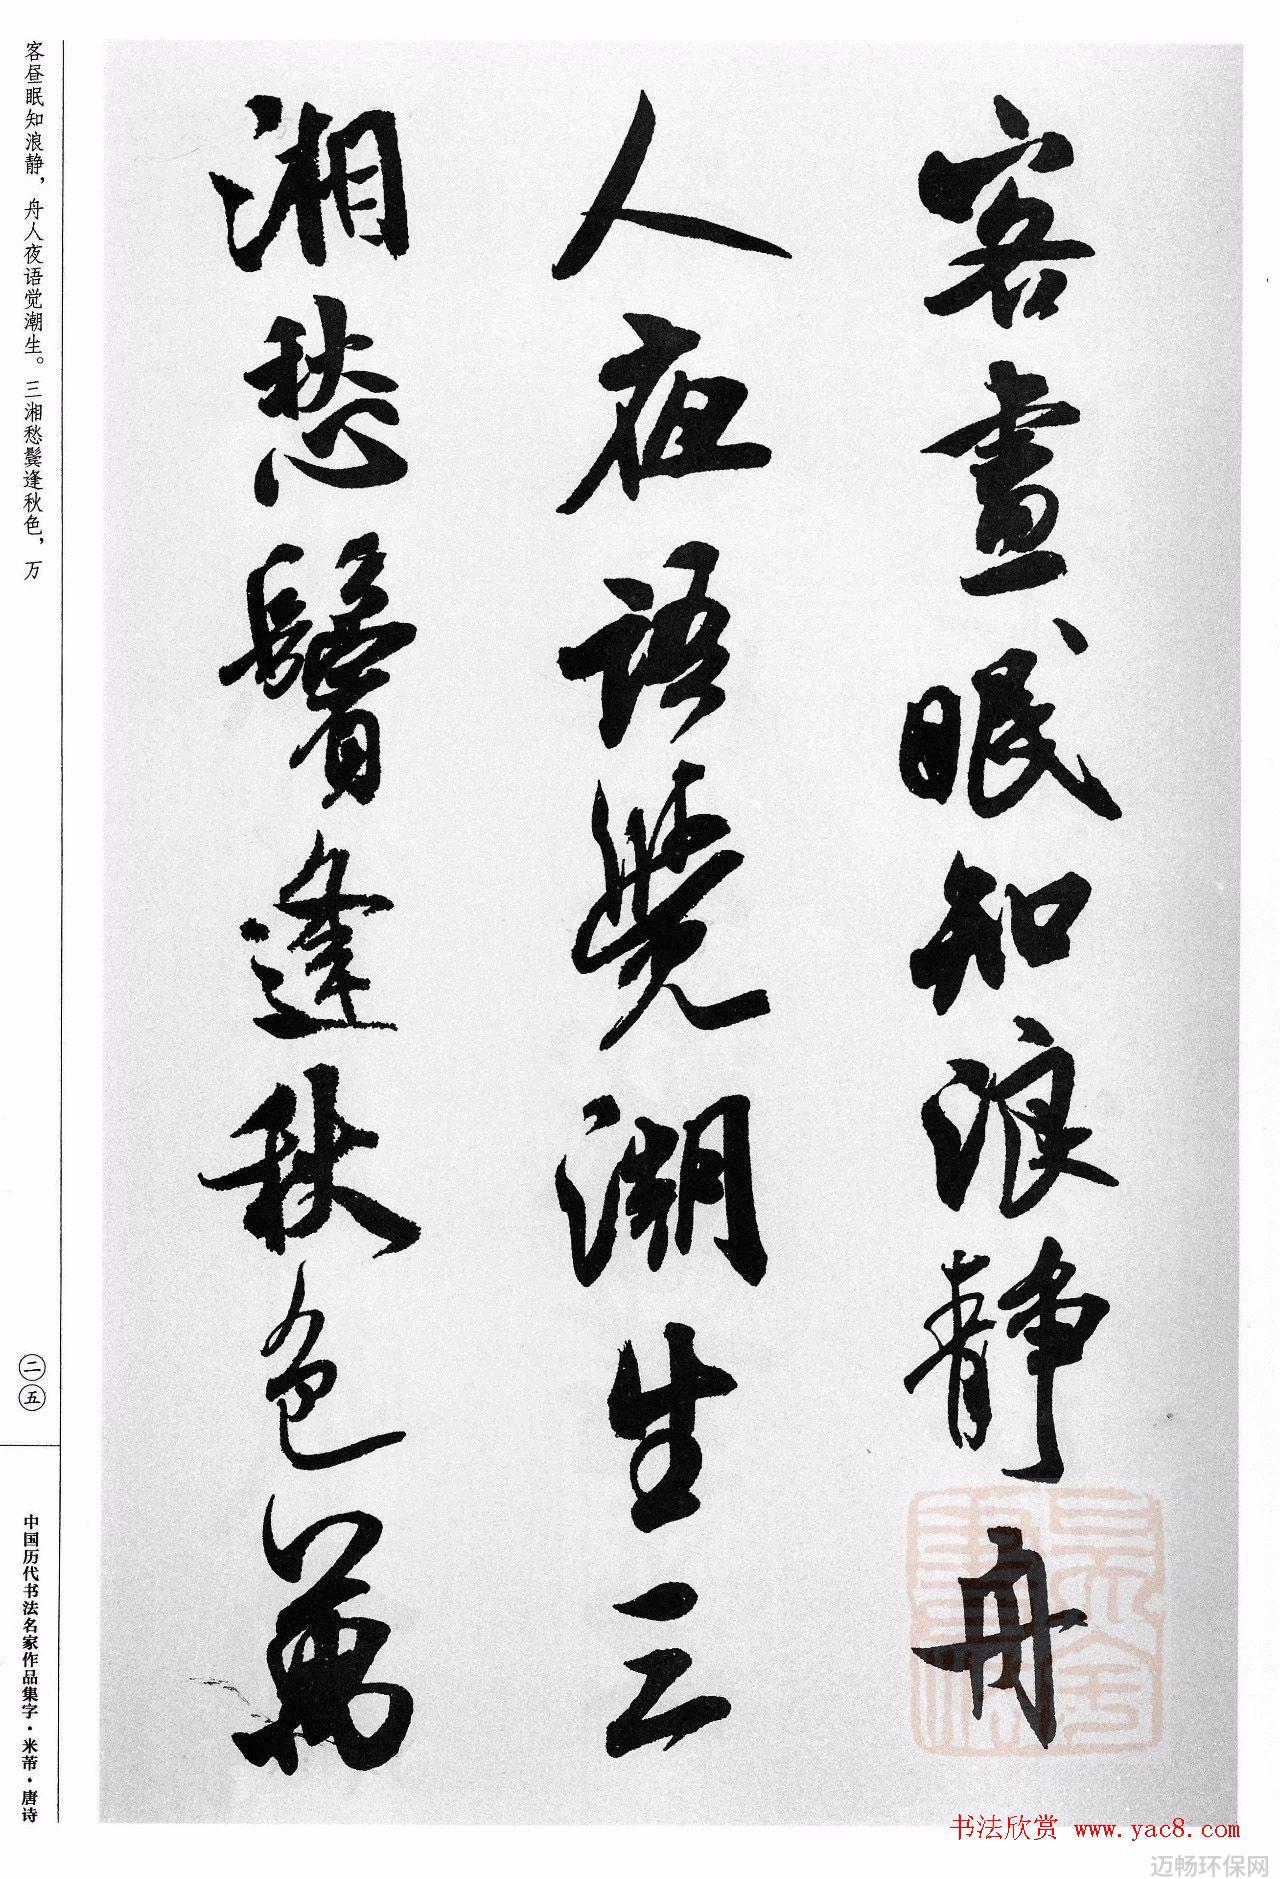 客晝眠知浪靜舟
人夜語覺潮生三
湘愁鬢逢秋色萬
客昼眠知浪静，舟人夜语觉潮生。三湘愁鬓逢秋色，万
二五
中国历代书法名家作品集字·米芾·唐诗
书法欣赏 www.yac8.com
迈畅环保网